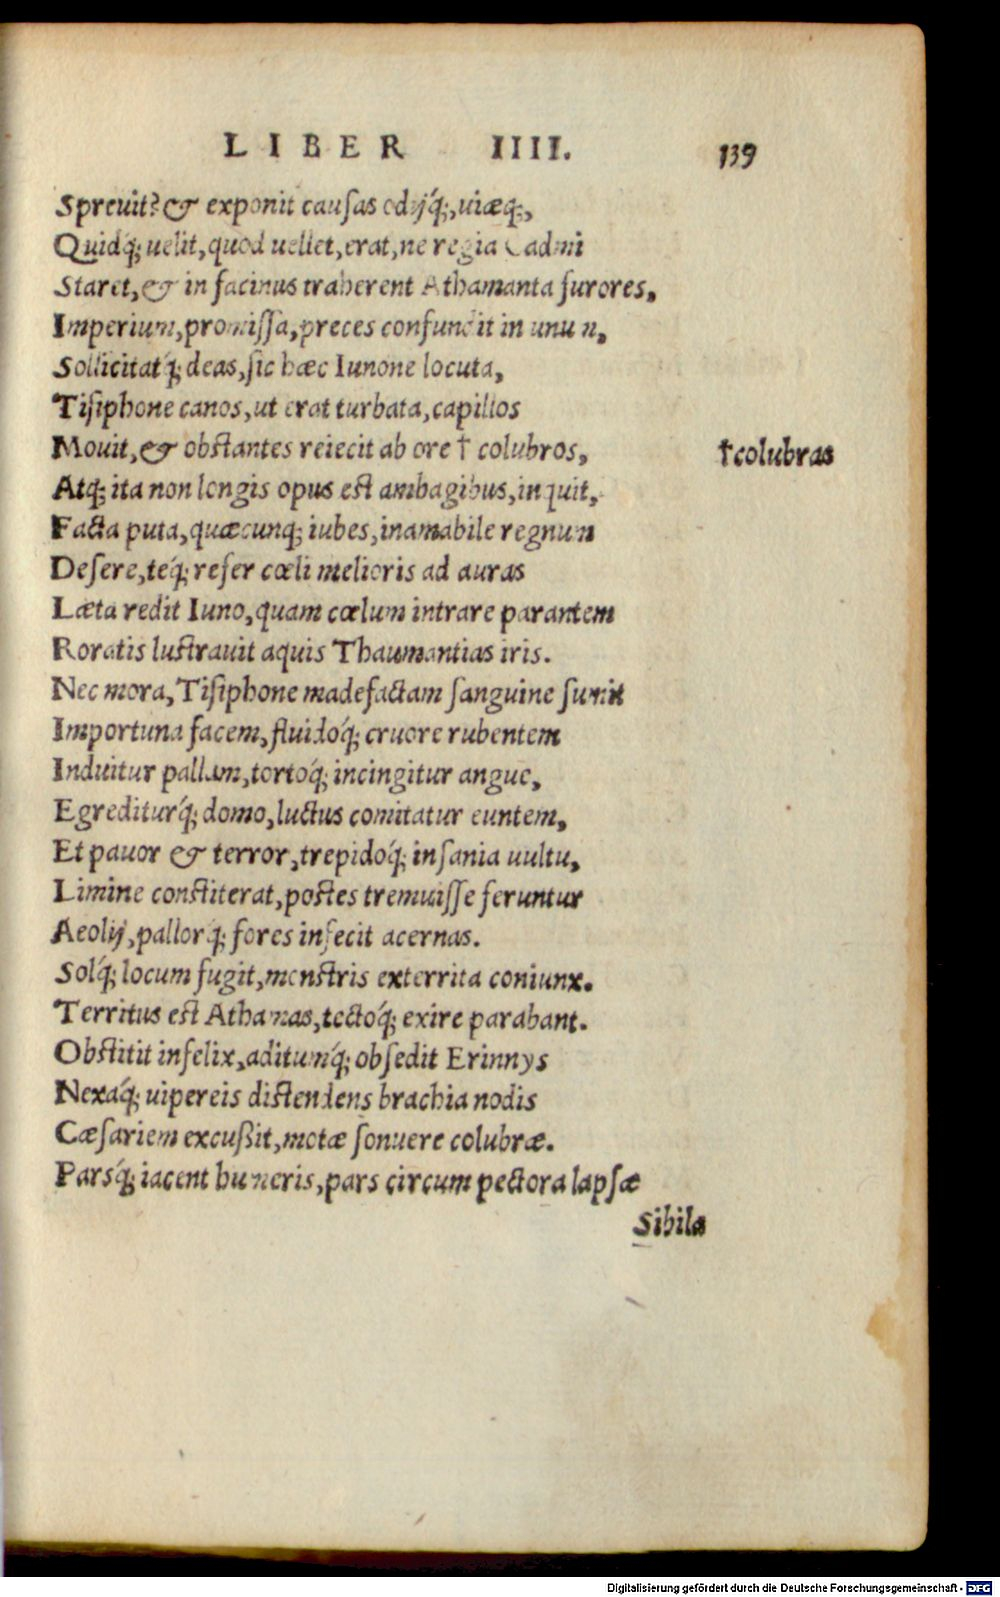 LIBER IIII. 139
Spreuit? & exponit causas odijq́;, uiæq;,
Quidq́; uelit, quod uellet, erat, ne regia Cadmi
Staret, & in facinus traherent Athamanta furores,
Imperium, promissa, preces confundit in unum,
Sollicitatq́; deas, sic hæc Iunone locuta,
Tisiphone canos, ut erat turbata, capillos
Mouit, & obstantes reiecit ab ore † colubros,
†colubras
Atq; ita non longis opus est ambagibus, inquit,
Facta puta, quæcunq; iubes, inamabile regnum
Desere, teq́; refer cœli melioris ad auras
Læta redit Iuno, quam cœlum intrare parantem
Roratis lustrauit aquis Thaumantias iris.
Nec mora, Tisiphone madefactam sanguine sumit
Importuna facem, fluidoq́; cruore rubentem
Induitur pallam, tortoq́; incingitur angue,
Egrediturq́; domo, luctus comitatur euntem,
Et pauor & terror, trepidoq́; insania uultu,
Limine constiterat, postes tremuisse feruntur
Aeolij, pallorq́; fores infecit acernas.
Solq́; locum fugit, monstris exterrita coniunx.
Territus est Athamas, tectoq́; exire parabant.
Obstitit infelix, aditumq́; obsedit Erinnys
Nexaq́; uipereis distendens brachia nodis
Cæsariem excußit, motæ sonuere colubræ.
Parsq́; iacent humeris, pars circum pectora lapsæ
Sibila
Digitalisierung gefördert durch die Deutsche Forschungsgemeinschaft - DFG